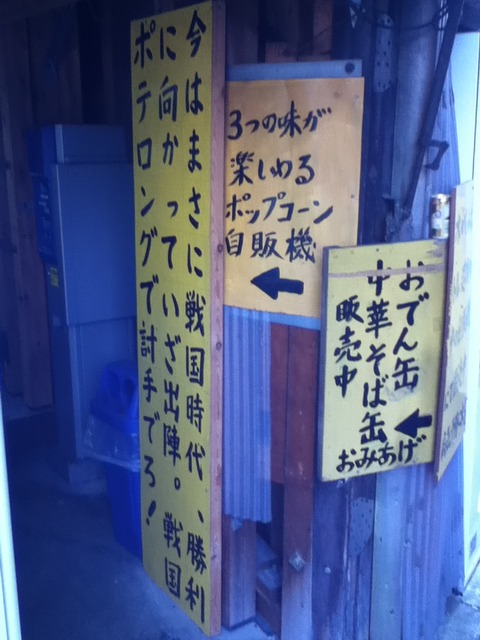 今はまさに戦国時代、勝利
に向かっていざ出陣。戦国
ポテロングで討手でろ!
3つの味が
楽しめる
ポップコーン
自販機
おでん缶
中華そば缶
販売中
おみあげ